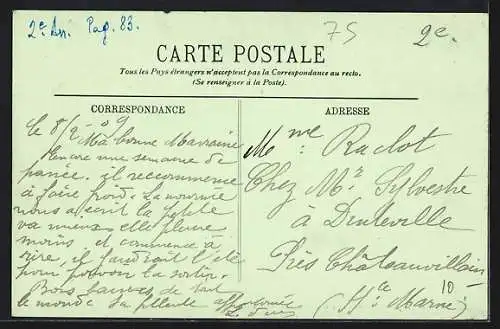 2e Arr. Pag. 83.
75
2e.
CARTE POSTALE
Tous les Pays étrangers n'acceptent pas la Correspondance au recto.
(Se renseigner à la Poste).
CORRESPONDANCE
le 8/2 09
Ma bonne Marraine
Encore une semaine de
il recommence
à faire froid. La nourrice
nous a écrit la petite
va mieux elle pleure
moins et commence à
rire, il faudrait l'été
pour pouvoir la sortir.
Bons baisers de tout
le monde Ta filleule
ADRESSE
Mme Ruclot
Chez Mr Sylvestre
à Dinteville
Près Châteauvillain
(Hte Marne)
10-